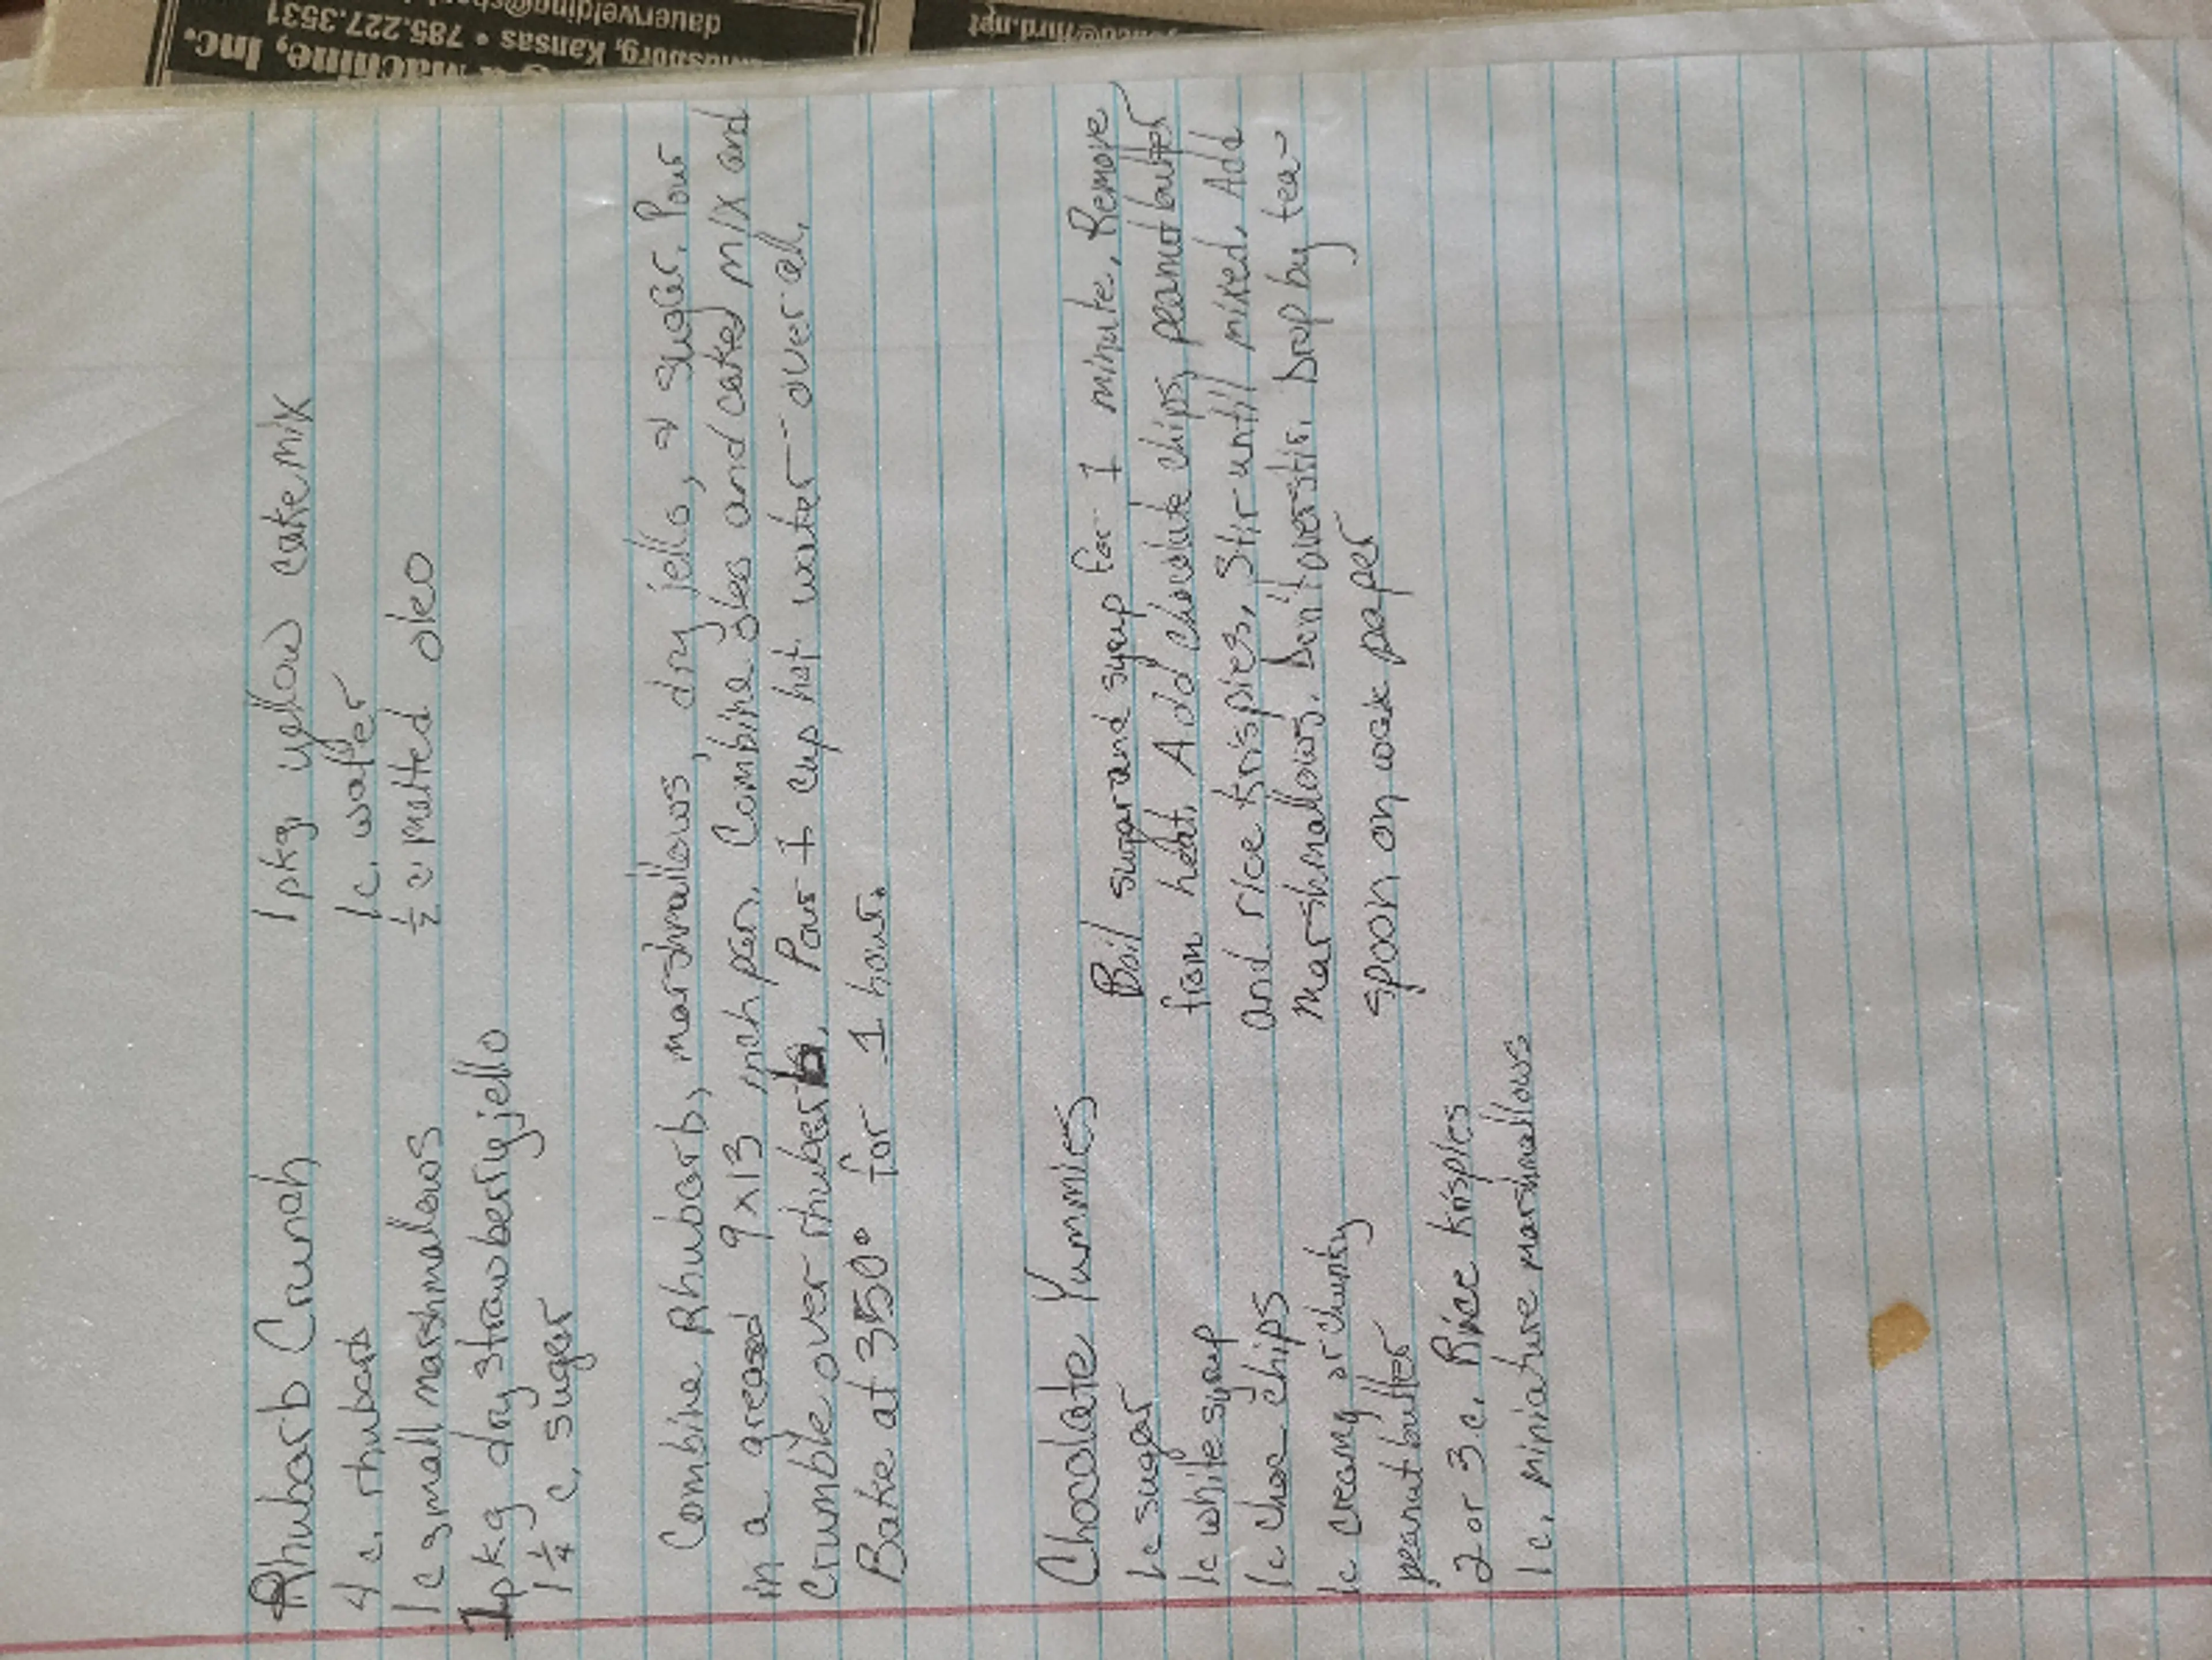 Machine, Inc.
Kansas • 785.227.3531
dauerwelding@
Rhubarb Crunch
1 pkg. yellow cake mix
4 c. rhubarb
1 c. water
1 c small marshmalows
½ c. melted oleo
1 pkg dry strawberry jello
1 ¼ c. suger
Combine Rhubarb, marshmallows, dry jello, & suger. Pour
in a greased 9x13 inch pan. Combine oleo and caked mix and
Crumble over rhuberb. Pour 1 cup hot water over all.
Bake at 350° for 1 hour.
Chocolate Yummies
1c sugar
1c white syrup
1c choc chips
1c creamy or chunky
peanut butter
2 or 3 c. Rice krisples
1 c. miniature marshmallows
Boil sugar and syrup for 1 minute. Remove
from heat. Add chocolate chips, peanut butter
and rice krispies. Stir untill mixed. Add
marshmallows. Don't overstir. Drop by tea-
spoon on wax paper